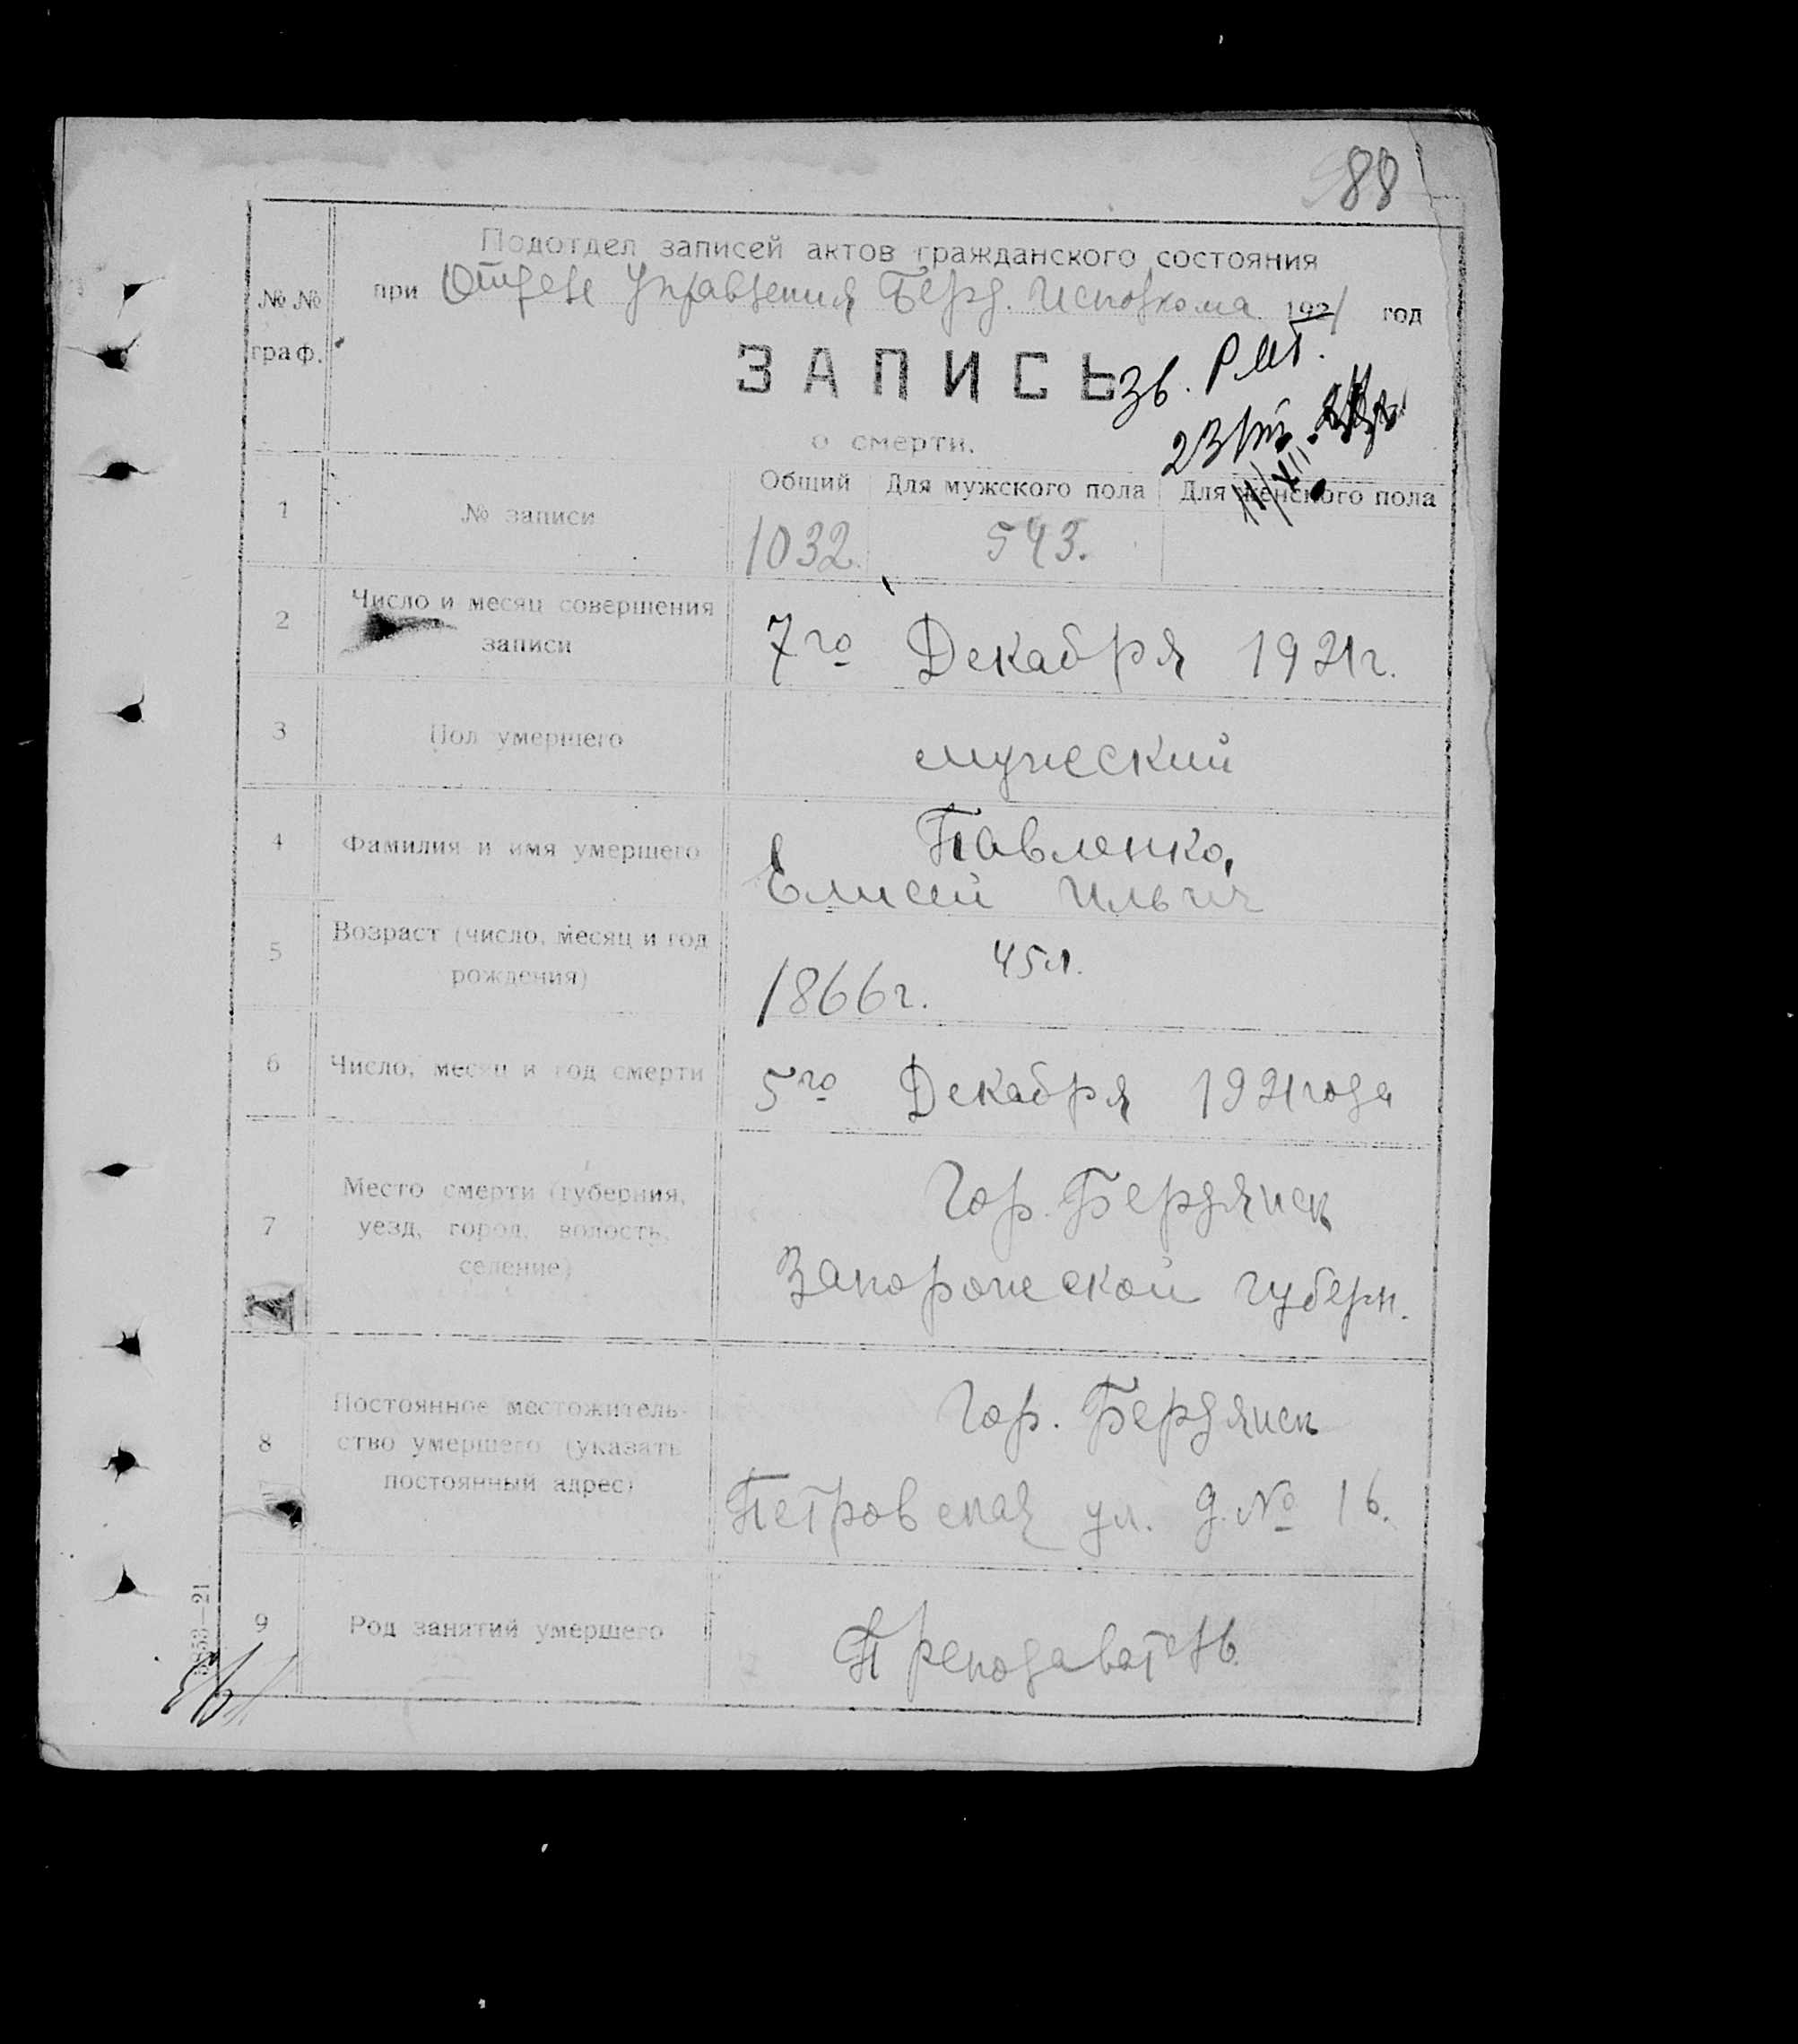 88
Подотдел записей актов гражданского состояния
№№ граф.
при Отделе Управления Берд. Исполкома 1921 год
ЗАПИСЬ
о смерти.
Зв. Рат.
23/VIII
1 № записи Общий Для мужского пола Для женского пола
1032. 543.
2 Число и месяц совершения
записи
7го Декабря 1921г.
3 Пол умершего мужеский
4 Фамилия и имя умершего Павленко,
Елисей Ильич
5 Возраст (число, месяц и год
рождения)
45л.
1866г.
6 Число, месяц и год смерти 5го Декабря 1921года
7 Место смерти (губерния,
уезд, город, волость,
селение)
Гор. Бердянск
Запорожеской губерн.
8 Постоянное местожитель-
ство умершего (указать
постоянный адрес)
Гор. Бердянск
Петровская ул. д. № 16.
9 Род занятий умершего Преподаватель.